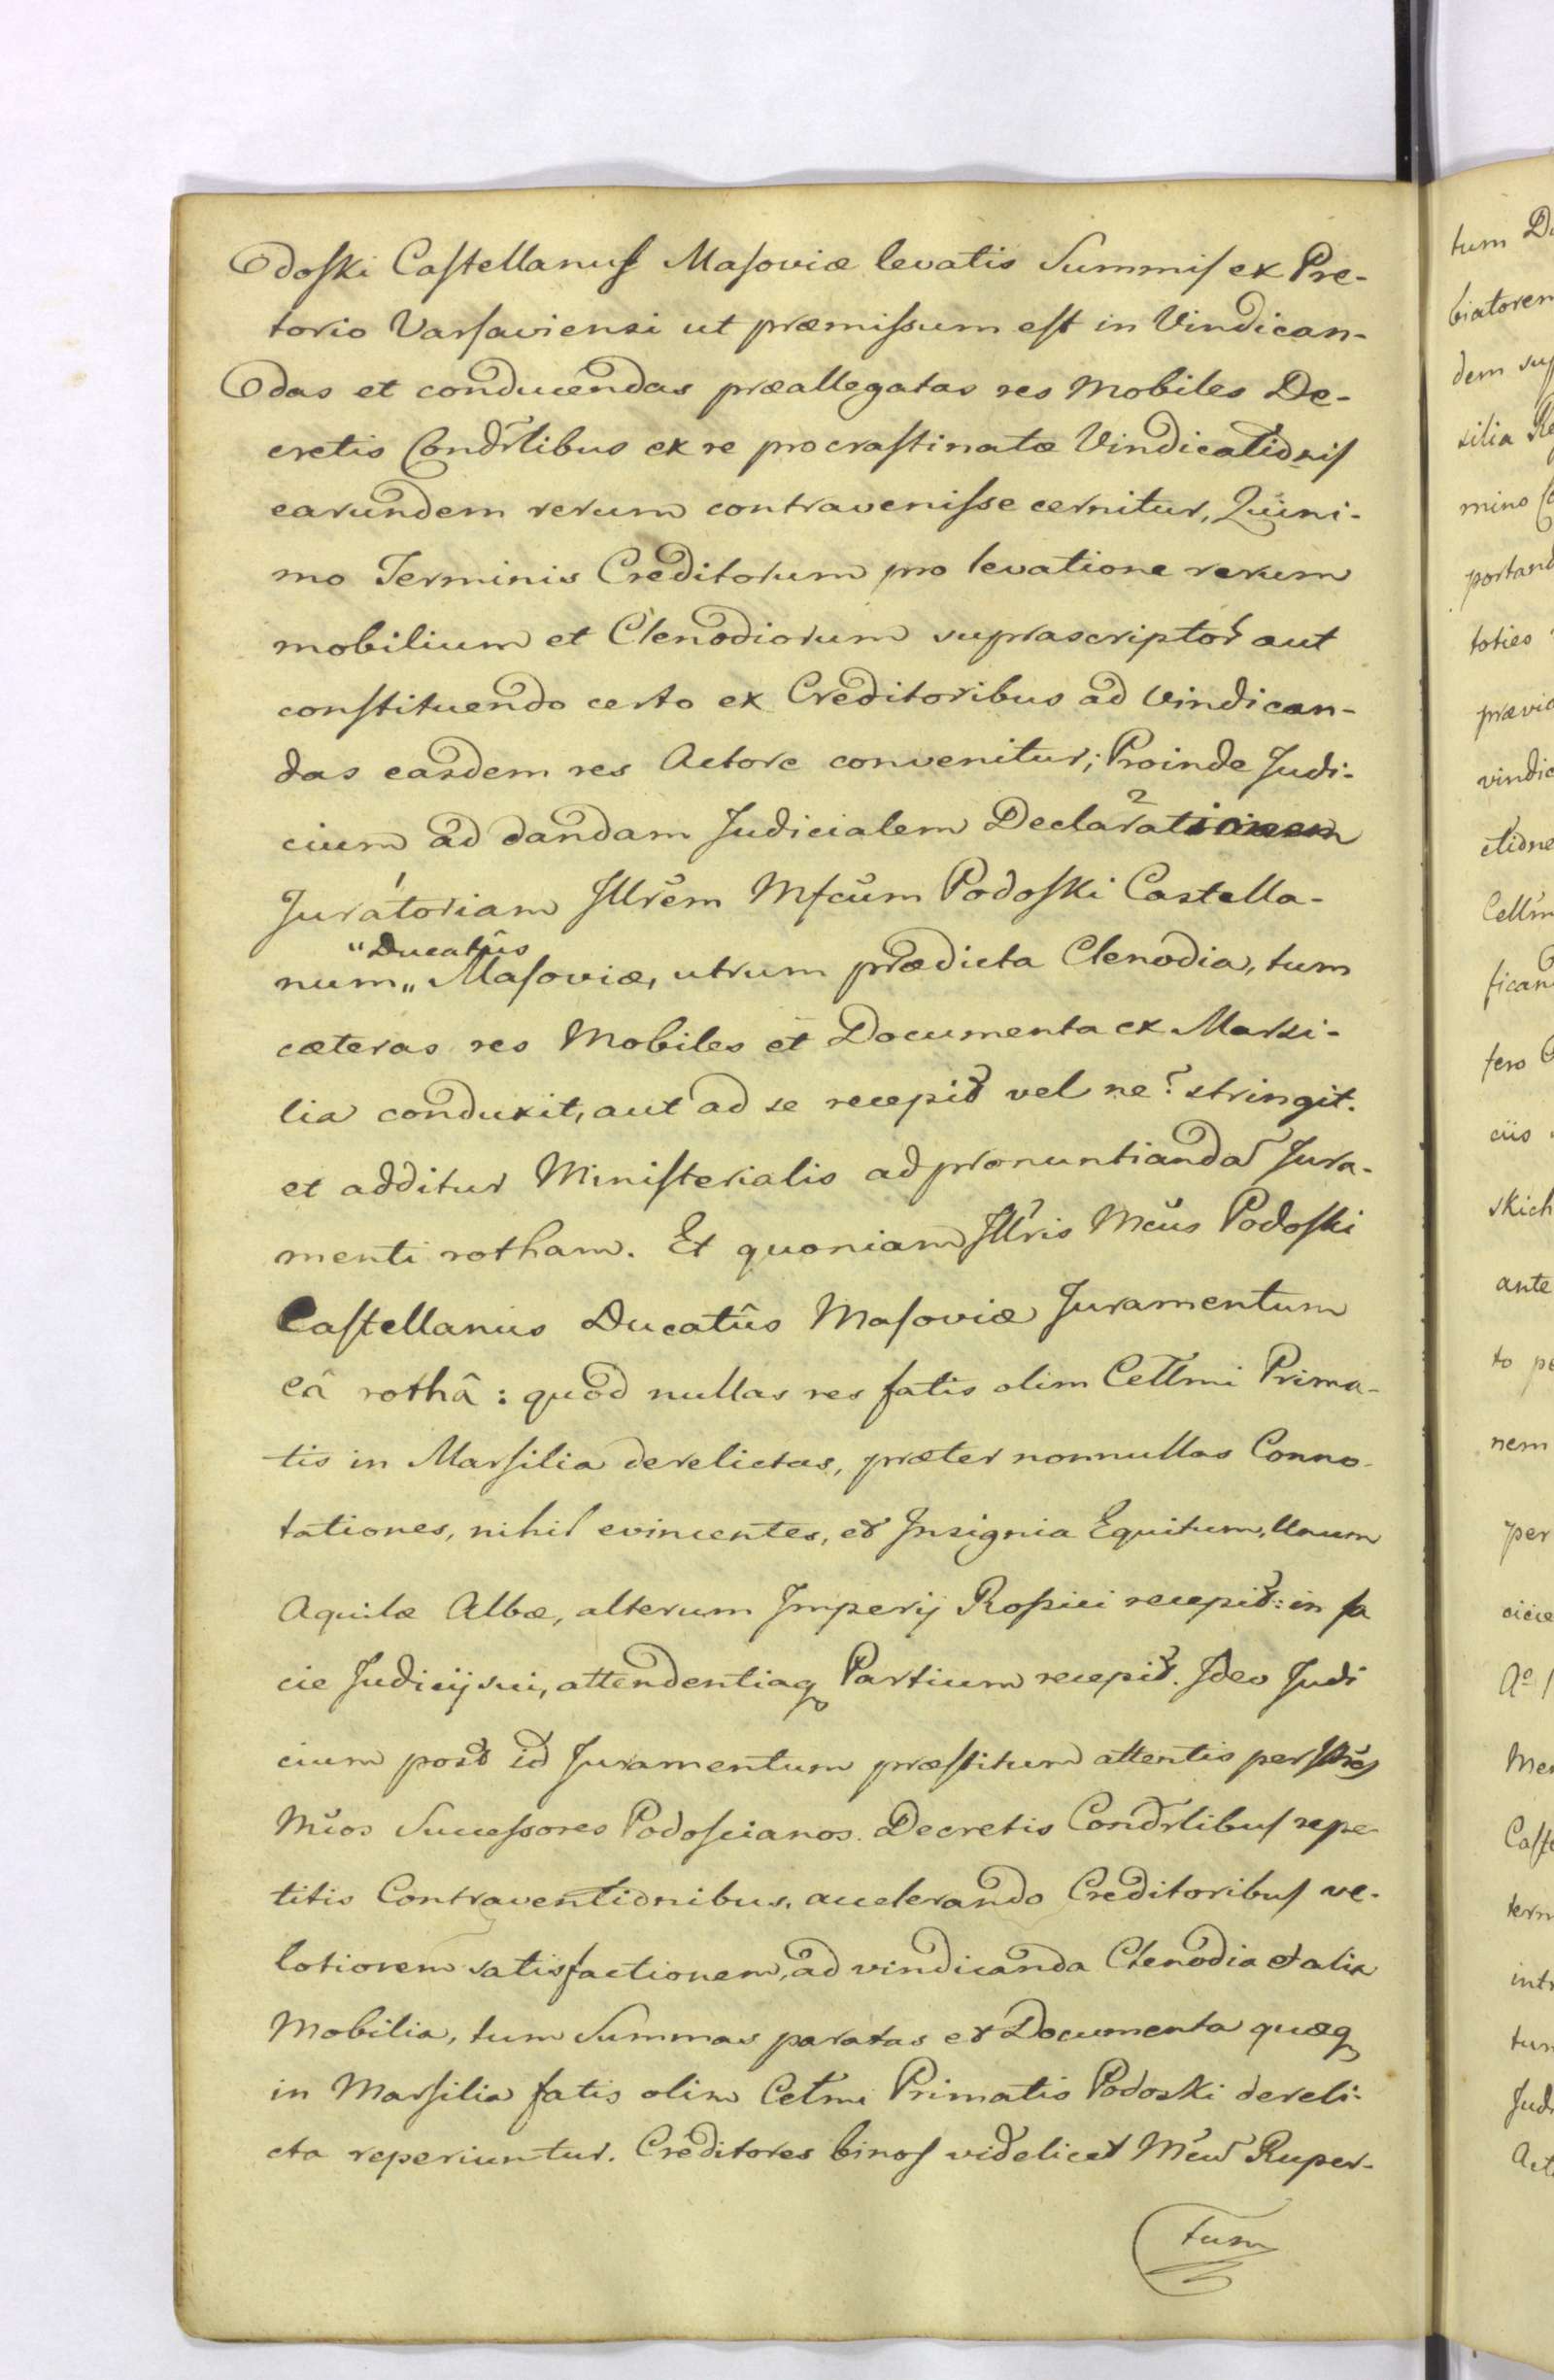 doſki Caſtellanuſ Maſoviæ levatis Summiſ ex Pre-
torio Varſaviensi ut præmiſsum eſt in Vindican-
das et conducendas præallegatas res Mobiles De-
cretis Condr̃libus ex re procraſtinatæ Vindicationiſ
earundem rerum contraveniſse cernitur, Quini-
mo Terminis Creditorum pro levatione rerum
mobilium et Clenodiorum suprascriptor̃ aut
conſtituendo certo ex Creditoribus ad Vindican-
das easdem res Actore convenitur; Proinde Judi-
cium ad dandam Judicialem Declarationem
Juratoriam Jllrẽm Mfcũm Podoſki Castella-
"Ducatûs
num„ Maſoviæ, utrum prædicta Clenodia, tum
cæteras res Mobiles et Documenta ex Marsi-
lia conduxit, aut ad se recepit vel ne? stringit.
et additur Miniſterialis ad pronuntianda͠ Jura-
menti rotham. Et quoniam Jllris Mcũs Podoſki
Caſtellanus Ducatûs Maſoviæ Juramentum
eâ rothâ: quod nullas res fatis olim Cellm̃i Prima-
tis in Marſilia derelictas, præter nonnullas Conno-
tationes, nihil evincentes, et Insignia Equitum, Unum
Aquilæ Albæ, alterum Imperij Roſsici recepit: in fa
cie Judicij sui, attendentiaq Partium recepit. Ideo Judi
cium post id Juramentum præſtitum attentis per Jllrẽs
Mcos Succeſsores Podoſcianos. Decretis Condr̃libuſ repe
titis Contraventionibus. accelerando Creditoribuſ ve-
lotiorem satisfactionem, ad vindicanda Clenodia et alia
Mobilia, tum Summas paratas et Documenta quæq
in Marſilia fatis olim Celm̃i Primatis Podoski dereli-
cta reperiuntur. Creditores binoſ videlicet Mcũ Ruper-
tum